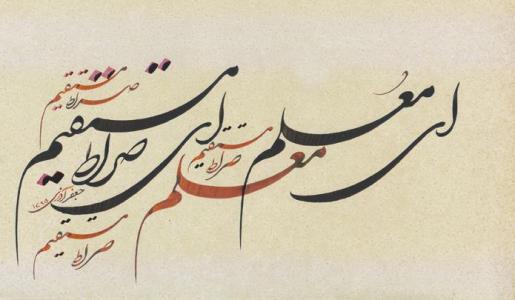 صراط مستقیم
ای معلم ای صراط مستقیم
صراط مستقیم
معلم
صراط مستقیم